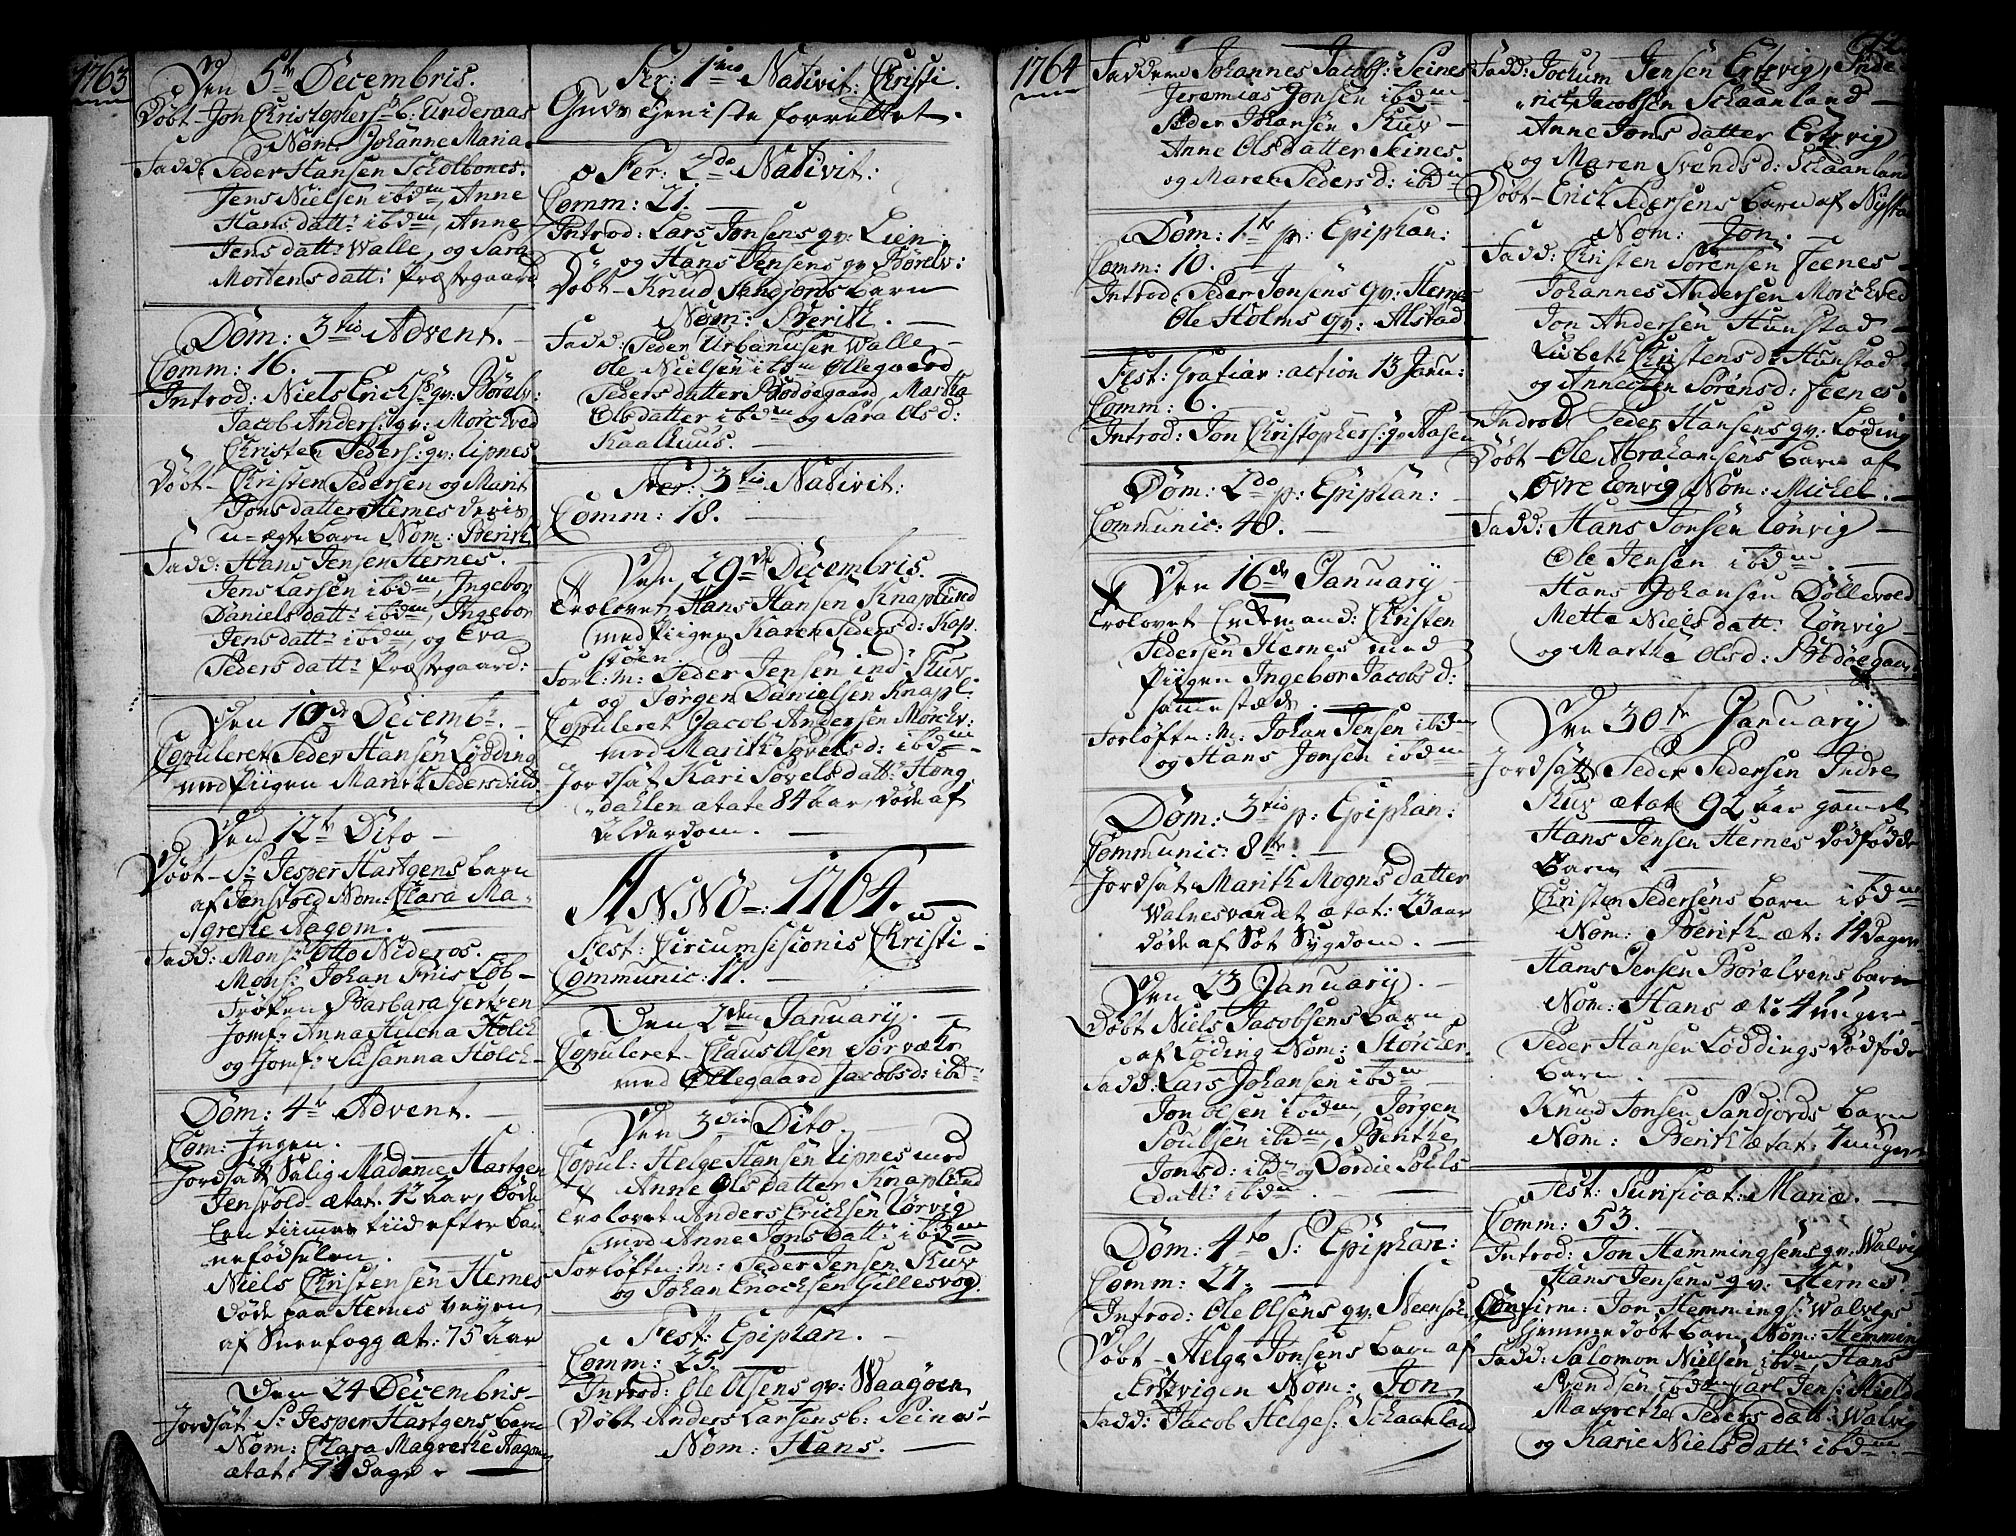 1763
Den 5te Decembris.
Døbt - Jon Christophers: b: Anderaas
Nom: Johanne Maria
Fadd: Peder Hansen Scholbones.
Jens Nielsen ibdm, Anne
Hans datt: ibdm, Anne
Jens datt: Walle, og Sara
Mortens datt: Præstegaard
Dom: 3tia Advent. -
Comm: 16. -
Introd: Niels Erichs: qv: Børelv:
Jacob Anders: qv: Mørchved
Christen Peders: qv: Lipnes
Døbt - Christen Pedersen og Marit
Jons datter Hernes deris
u-ægte barn Nom: Berith
Fadd: Hans Jensen Hernes.
Jens Larsen ibdm, Ingebor
Daniels datt: ibdm, Ingebor
Jens datt: ibdm, og Eva
Peders datt: Præstegaard:
Den 10de Decembr. -
Copuleret Peder Hansen Lødding
med Piigen Marith Pedersd: ibd
Den 12te Dito -
Døbt - Sr Jesper Hartgens barn
af Jensvold Nom: Clara Ma-
grethe Aagom. -
Fadd: Mons: Otto Nideros.
Mons: Johan Friis Løb-
Frøken Barbara Gertzen
Jomf: Anna Helena Holch
og Jomf: Susanna Holch -
Dom: 4te Advent. -
Com: Ingen.
Jordsat Salig Madame Hartgen
Jensvold ætat. 42 Aar, døde
een times tiid efter bar
nefødselen.
Niels Christensen Hernes
døde paa Hernes Veyen
af Sneefogg æt: 75 Aar
Den 24 Decembris -
Jordsat Sr Jesper Hartgens barn
Nom: Clara Magrethe Aagom
ætat: 11 dage. -
Fer: 1ma Nativit: Christi.
Guds tjeniste forrettet.
Fer: 2da Nativit:
Comm: 21. -
Introd: Lars Jonsens qv: Lien
og Hans Jensens qv Børelv:
Døbt - Knud Sandjords barn
Nom: Berith. -
Fadd: Peder Urbanusen Walle -
Ole Nielsen ibdm Ollegaard
Peders datter Bodøegaard, Martha
Olsdatter ibdm og Sara Ols d:
Kaalhuus. -
Fer: 3tia Nativit:
Comm: 18. -
Den 29de Decembris. -
Trolovet Hans Hansen Knaplund
med Piigen Karen Peders d: Kop
støen.
Forl: M: Peder Jensen ind: Kuv
og Jørgen Danielsen Knapl:
Copuleret Jacob Andersen Mørchv:
med Marith Povels d: ibdm -
Jordsat Kari Povels datt: Hong
dahlen ætate 84 Aar, døde af
Alderdom. -
ANNO: 1764. -
Fest: Circumsisionis Christi -
Communic: 11. -
Den 2den January. -
Copuleret - Claus Olsen Sørvær
med Ollegaard Jacobsd: ibdm
Den 3die Dito. -
Copul: Helge Hansen Lipnes med
Anne Ols datter Knaplund
Trolovet Anders Erichsen Lørvig
med Anne Jons datt: ibdm
Forløftn: M: Peder Jensen Kuv
og Johan Enochsen Gillesvog.
Fest: Epiphan. -
Comm: 25. -
Introd: Ole Olsens qv: Waagøen
Døbt Anders Larsens b: Seines -
Nom: Hans. -
1764
Faddere Johannes Jacobs: Seines
Jeremias Jonsen ibdm -
Peder Johansen Kuv -
Anne Ols datter Seines.
og Maren Peders d: ibdm
Dom: 1te p: Epiphan:
Comm: 10. -
Introd: Peder Jonsens qv: Hernes
Ole Holms qv: Alstad
Fest: Gratiar: action 13 Janu:
Comm: 6. -
Introd: Jon Christophers: qv Aasen
Dom: 2do p: Epiphan:
Communic: 48. -
Den 16de January -
Trolovet Enkemand: Christen
Pedersen Hernes med
Piigen Ingebor Jacobs d:
sammesteds. -
Forløftn: M: Johan Jensen ibdm
og Hans Jonsen ibdm
Dom: 3tia p: Epiphan:
Communic: 8te. -
Jordsat Marith Mogns datter
Walnesvandet ætat: 23 aar
døde af Sot Sygdom. -
Den 23 January. -
Døbt Niels Jacobsens barn
af Løding Nom: Størcher.
Fadd: Lars Johansen ibdm -
Jon Olsen ibdm, Jørgen
Poulsen ibdm, Benthe
Jonsd: ibdm og Dordie Pouls
datt: ibdm -
Dom: 4to p: Epiphan:
Comm: 27. -
Introd: Ole Olsens qv: Steensøe
Døbt - Helge Jonsens barn af
Ertvigen Nom: Jon.
Fadd: Jacob Helges: Schaanland
Fadd: Jochum Jensen Ertvig, Fride-
rich Jacobsen Schaanland -
Anne Jons datter Ertvig
og Maren Svends d: Schaanland
Døbt - Erich Pedersens barn af Nystad
Nom: Jon.
Fadd: Christen Sørensen Feenes -
Johannes Andersen Morchved
Jon Andersen Hunstad -
Lisbeth Christens d: Hunstad
og Annechen Sørens d: Feenes.
Introd Peder Hansens qv: Løding
Døbt - Ole Abrahamsens barn af
Øvre Lønvig Nom: Michel. -
Fadd: Hans Jonsen Lønvig -
Ole Jensen ibdm. -
Hans Johansen Døllevold
Mette Niels datt: Lønvig
og Martha Olsd: Bodøegaard
Den 30te January
Jordsatt Peder Pedersen Indre
Kuv ætat 92 Aar gammel
Hans Jensen Hernes dødfødde
Barn. -
Christen Pedersens barn ibdm
Nom: Berith æt: 14 dagen
Hans Jensen Børelvens barn
Nom: Hans æt: 4 uger -
Peder Hansen Løddings dødføde
barn. -
Knud Jonsen Sandjords barn
Nom: Berith ætat: 7 uger
Fest: Purificat: Mariæ. -
Comm: 53. -
Introd: Jon Hemmingsens qv: Walvig
Hans Jensens qv: Hernes
Confirm: Jon Hemmings: Walvigs
hjemme døbt barn Nom: Hemming
Fadd: Salomon Nielsen ibdm, Hans
Svendsen ibdm Carl Jens: Mielde
Margrethe Peders datt: Walvig
og Karie Niels datt: ibdm -